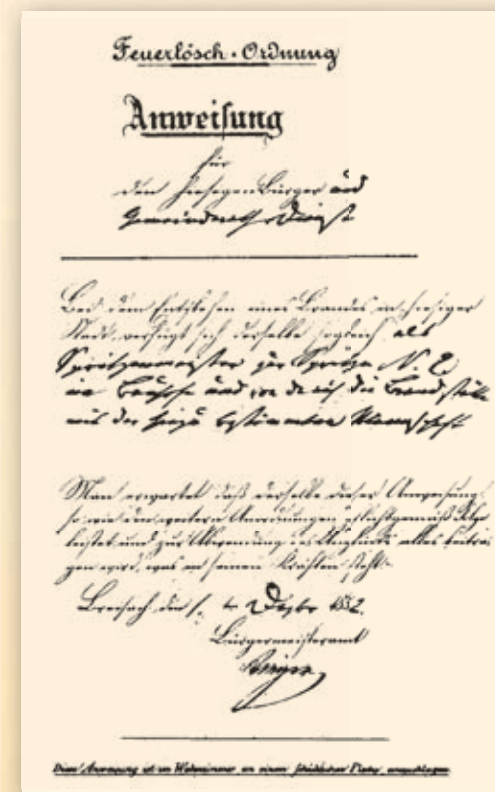 Feuerlösch-Ordnung
Anweisung
für
den hiesigen Bürger und
Gemeinderath Dienst
Bei dem Entstehen eines Brandes in hiesiger
Stadt verfügt sich derselbe sogleich als
Spritzenmeister zur Spritze N. 2
im und von da an die Brandstätte
mit der hiezu bestimmten Mannschaft
Man erwartet daß derselbe dieser Anweisung,
so wie den weitern Anordnungen pflichtgemäß Folge
leistet und zur Abwendung des Unglücks alles beitra-
gen wird, was in seinen Kräften steht.
Breisach den 1. ten Dezbr 1852.
Bürgermeisteramt
Diese Anweisung ist im Wohnzimmer an einem schicklichen Platz anzuschlagen